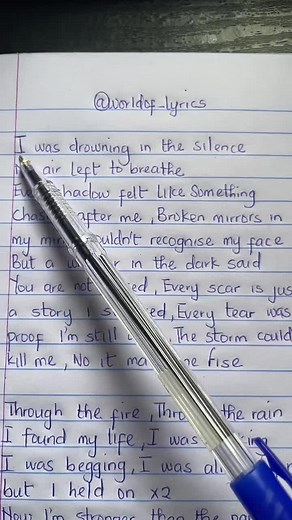 @worldof_lyrics
I was drowning in the silence
air left to breathe
shadow felt like something
after me, Broken mirrors in
my couldn't recognise my face
But a in the dark said
You are not, Every scar is just
a story I, Every tear was
proof I'm still, The storm could
kill me, No it me rise
Through the fire, the rain
I found my life, I was
I was begging, I was
but I held on x2
Now I'm stronger than the